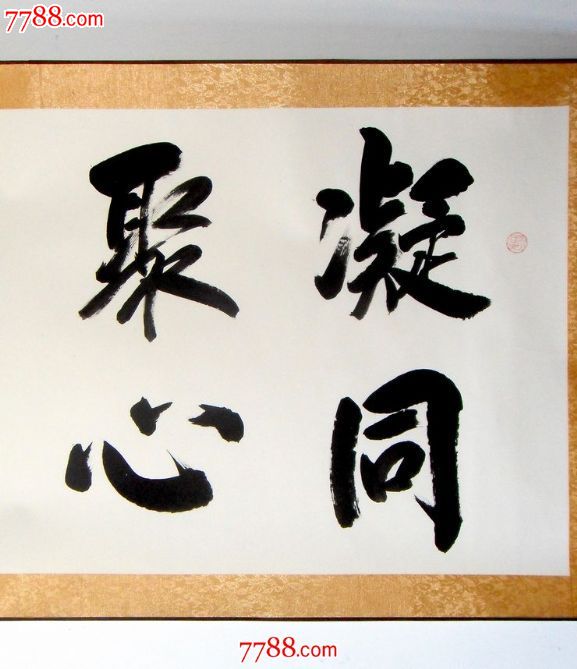 7788.com
凝同
聚心
7788.com